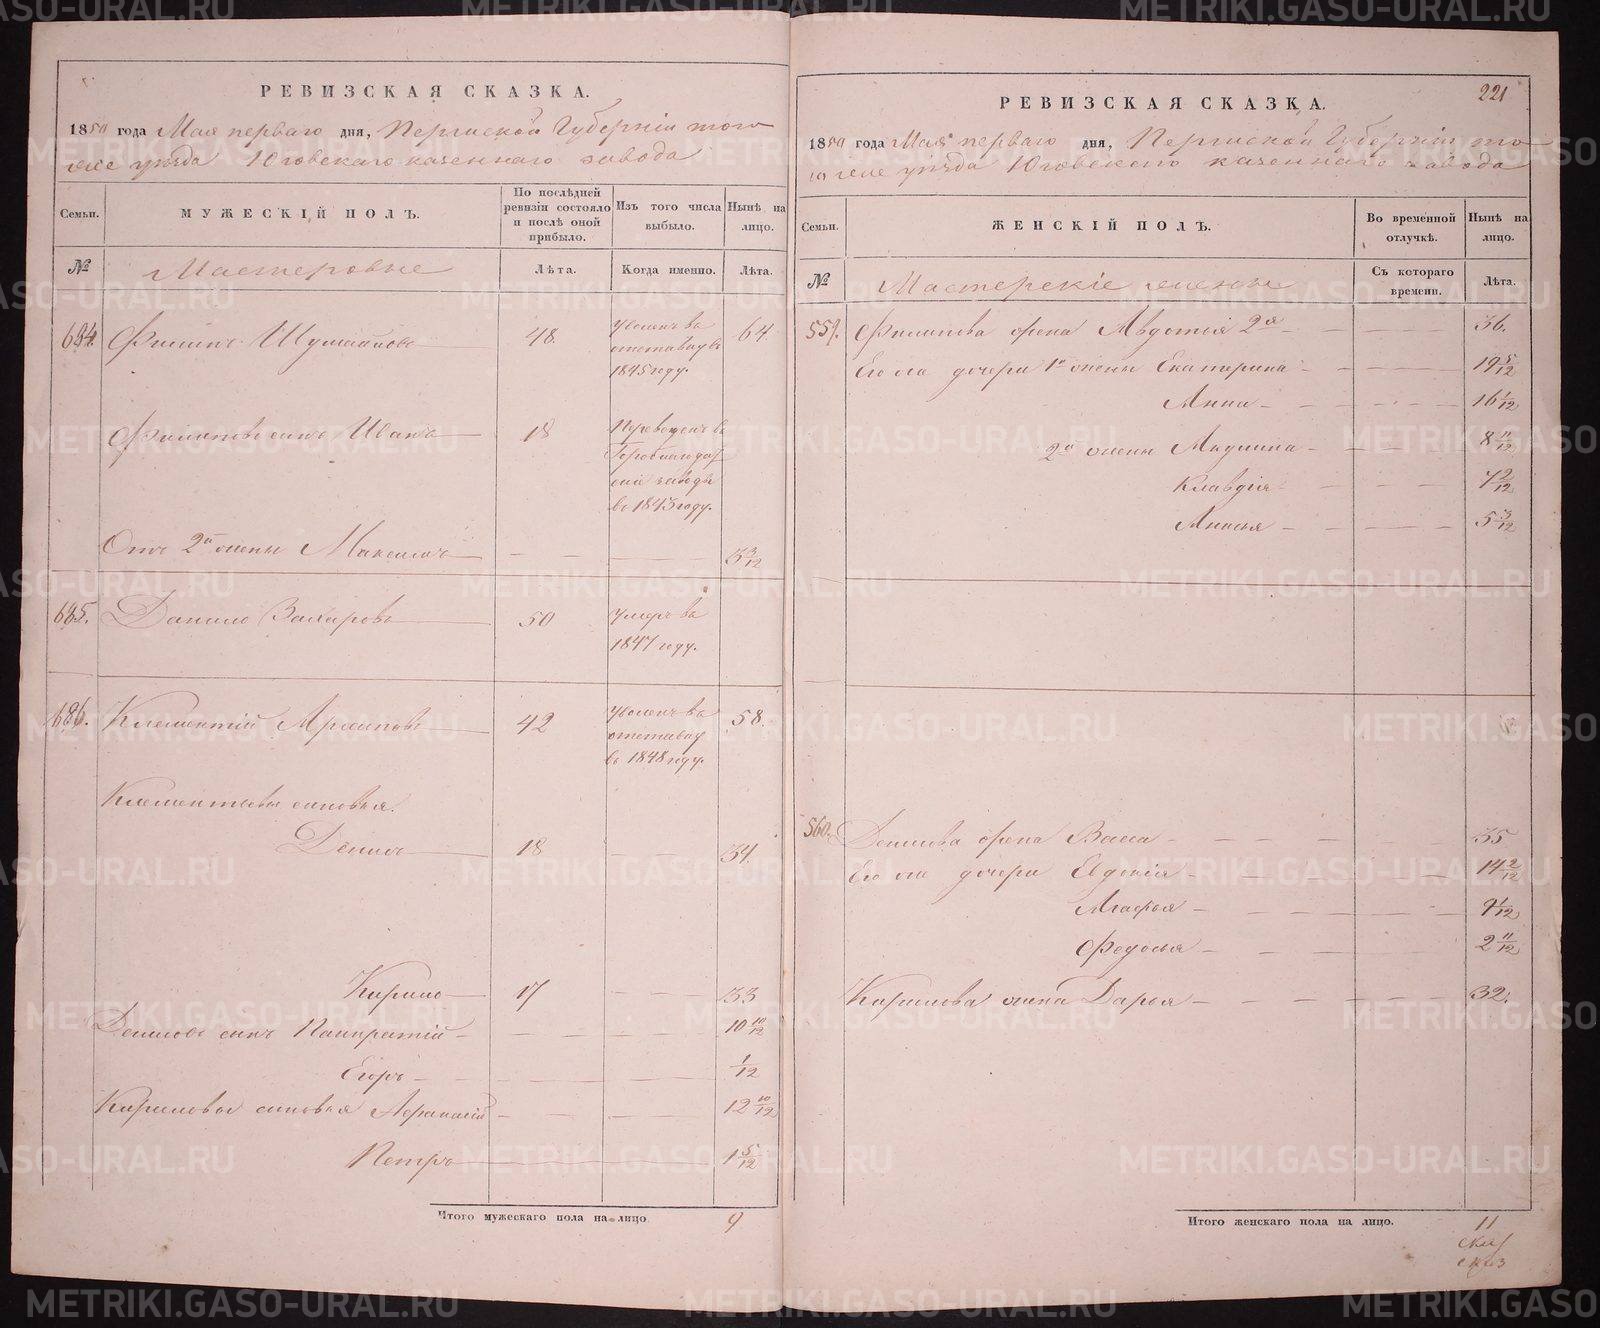 РЕВИЗСКАЯ СКАЗКА.
1850 года Мая перваго дня, Пермской Губерніи того
же уѣзда Юговскаго казеннаго завода
Семьи. МУЖЕСКІЙ ПОЛЪ. По послѣдней ревизіи состояло и послѣ оной прибыло. Изъ того числа выбыло. Нынѣ на лицо.
№ Мастеровые Лѣта. Когда именно. Лѣта.
684. Филипъ 48 Уволенъ въ отставку въ 1845 году. 64.
Филиповъ сынъ Иванъ 18 Переведенъ въ Гороблагодат скій заводъ въ 1843 году.
Отъ 2й жены Максимъ 3 3/12
685. Данило Захаровъ 50 Умеръ въ 1847 году.
686. Клементій Архиповъ 42 Уволенъ въ отставку въ 1848 году. 58.
Клементьевы сыновья.
Денисъ 18 34.
Кирило 17 33
Денисовъ сынъ Панкратій 10 10/12
Егоръ 1/12
Кириловы сыновья Афанасій 12 10/12
Петръ 1 5/12
Итого мужескаго пола на лицо 9
221
РЕВИЗСКАЯ СКАЗКА.
1850 года Мая перваго дня, Пермской Губерніи то
го же уѣзда Юговскаго казеннаго завода
Семьи. ЖЕНСКІЙ ПОЛЪ. Во временной отлучкѣ. Нынѣ на лицо.
№ Мастерскіе жены Съ котораго времени. Лѣта.
559. Филипова жена Авдотья 2я 36.
Его же дочери 1й жены Екатерина 19 5/12
Анна 16 1/12
2й жены Акулина 8 11/12
Клавдія 7 2/12
Анисья 5 3/12
560. Денисова жена Васса 35
Его же дочери Евдокія 14 2/12
Агафья 9 1/12
Федосья 2 11/12
Кирилова жена Дарья 32.
Итого женскаго пола на лицо. 11
METRIKI.GASO-URAL.RU